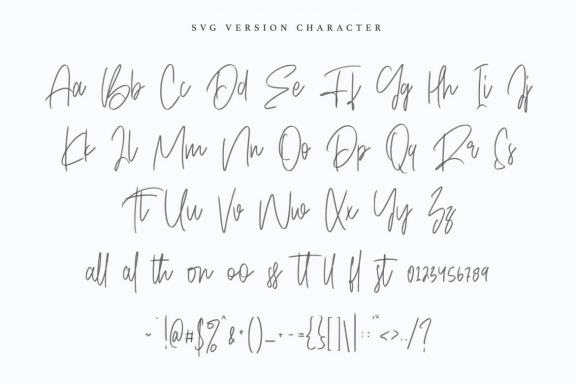 SVG VERSION CHARACTER
Aa Bb Cc Dd Ee Ff Gg Hh Ii Jj
Kk Ll Mm Nn Oo Pp Qq Rr Ss
Tt Uu Vv Ww Xx Yy Zz
all al th on oo ss tt ll fl st 0123456789
~`!@#$%^&*()_+-={}[]\|::"'<>../?